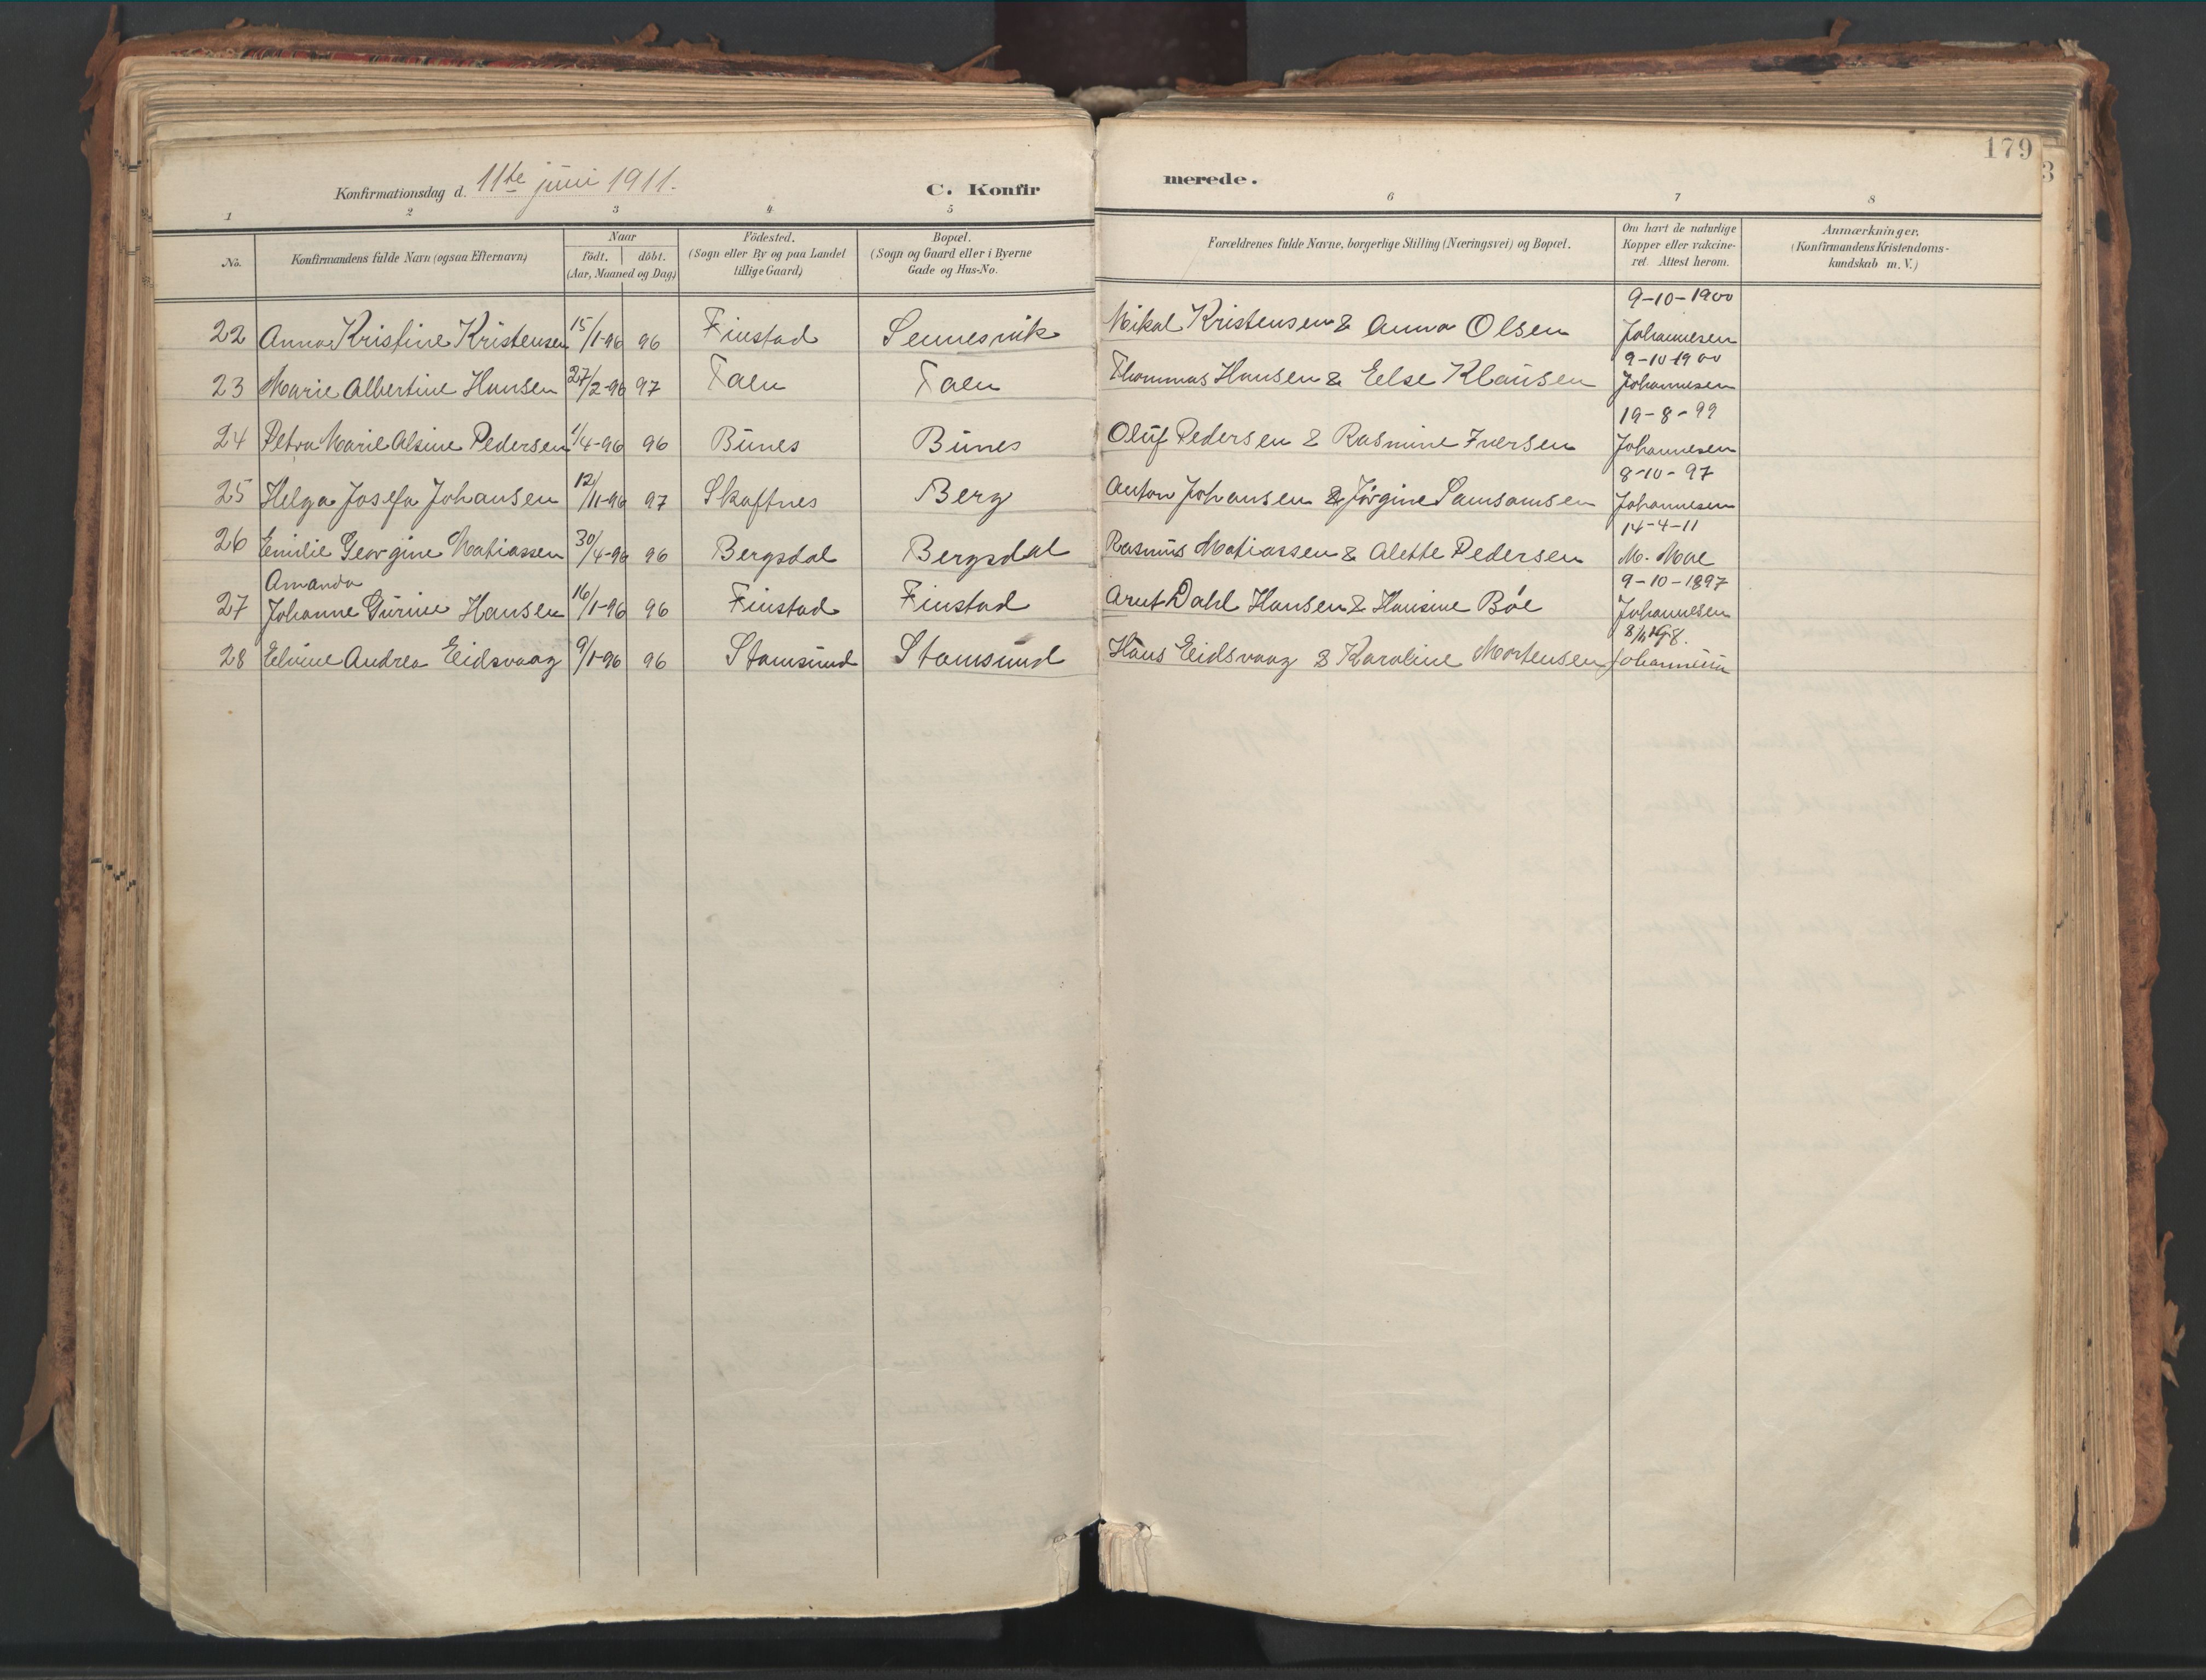 179
3
Konfirmationsdag d. 11te juni 1911. C. Konfir merede.
1 2 3 4 5 6 7 8
No. Konfirmandens fulde Navn (ogsaa Efternavn) Naar födt. döbt. (Aar, Maaned og Dag) Födested. (Sogn eller By og paa Landet tillige Gaard) Bopæl. (Sogn og Gaard eller i Byerne Gade og Hus-No. Forældrenes fulde Navne, borgerlige Stilling (Næringsvei) og Bopæl. Om havt de naturlige Kopper eller vakcineret. Attest herom. Anmærkninger. (Konfirmandens Kristendomskundskab m. V.)
22 Anna Kristine Kristensen 15/1-96 96 Finstad Sennesvik Mikal Kristensen & Anna Olsen 9-10-1900 Johannesen
23 Marie Albertine Hansen 27/2-96 97 Taen Taen Thommas Hansen & Eelse Klausen 9-10-1900 Johannesen
24 Petra Marie Alsine Pedersen 1/4-96 96 Bunes Bunes Oluf Pedersen & Rasmine Iversen 19-8-99 Johannesen
25 Helga Josefa Johansen 12/11-96 97 Skaftnes Berg Anton Johansen & Jörgine Samsonsen 8-10-97 Johannesen
26 Emilie Georgine Matiassen 30/4-96 96 Bergsdal Bergsdal Rasmus Matiassen & Alette Pedersen 14-4-11 M. Moe
Amanda
27 Johanne Gurine Hansen 16/1-96 96 Finstad Finstad Arnt Dahl Hansen & Hansine Böe 9-10-1897 Johannesen
28 Elvine Andrea Eidsvaag 9/1-96 96 Stamsund Stamsund Hans Eidsvaag & Karoline Mortensen Johannesen